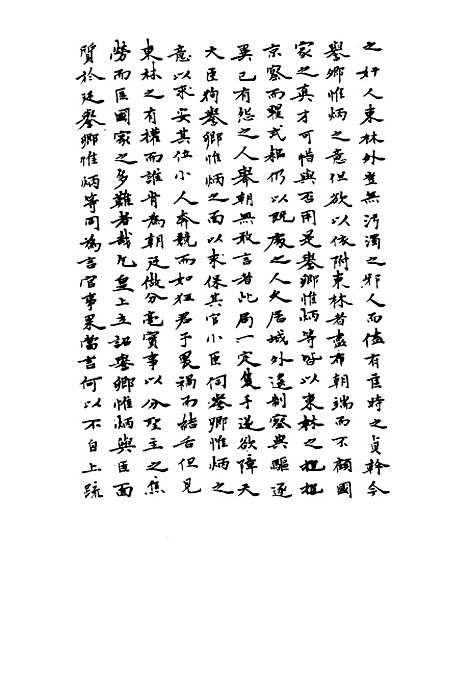 之奸人東林外豈無污濁之邪人而儘有匡時之貞幹今
譽卿惟炳之意但欲以依附東林者盡布朝端而不顧國
家之真才可惜與否用是譽卿惟炳等皆以東林之
京察而瞿式耜仍以既廢之人久居城外遙制察典驅逐
異己有怨之人舉朝無敢言者此局一定隻手遂欲障天
大臣徇譽卿惟炳之面以求保其官小臣伺譽卿惟炳之
意以求安其位小人奔競而如狂君子畏禍而結舌但見
東林之有權而誰肯為朝廷做分毫實事以分聖主之焦
勞而匡國家之多難者哉乞皇上立詔譽卿惟炳與臣面
質於廷譽卿惟炳等同為言官事果當言何以不自上疏